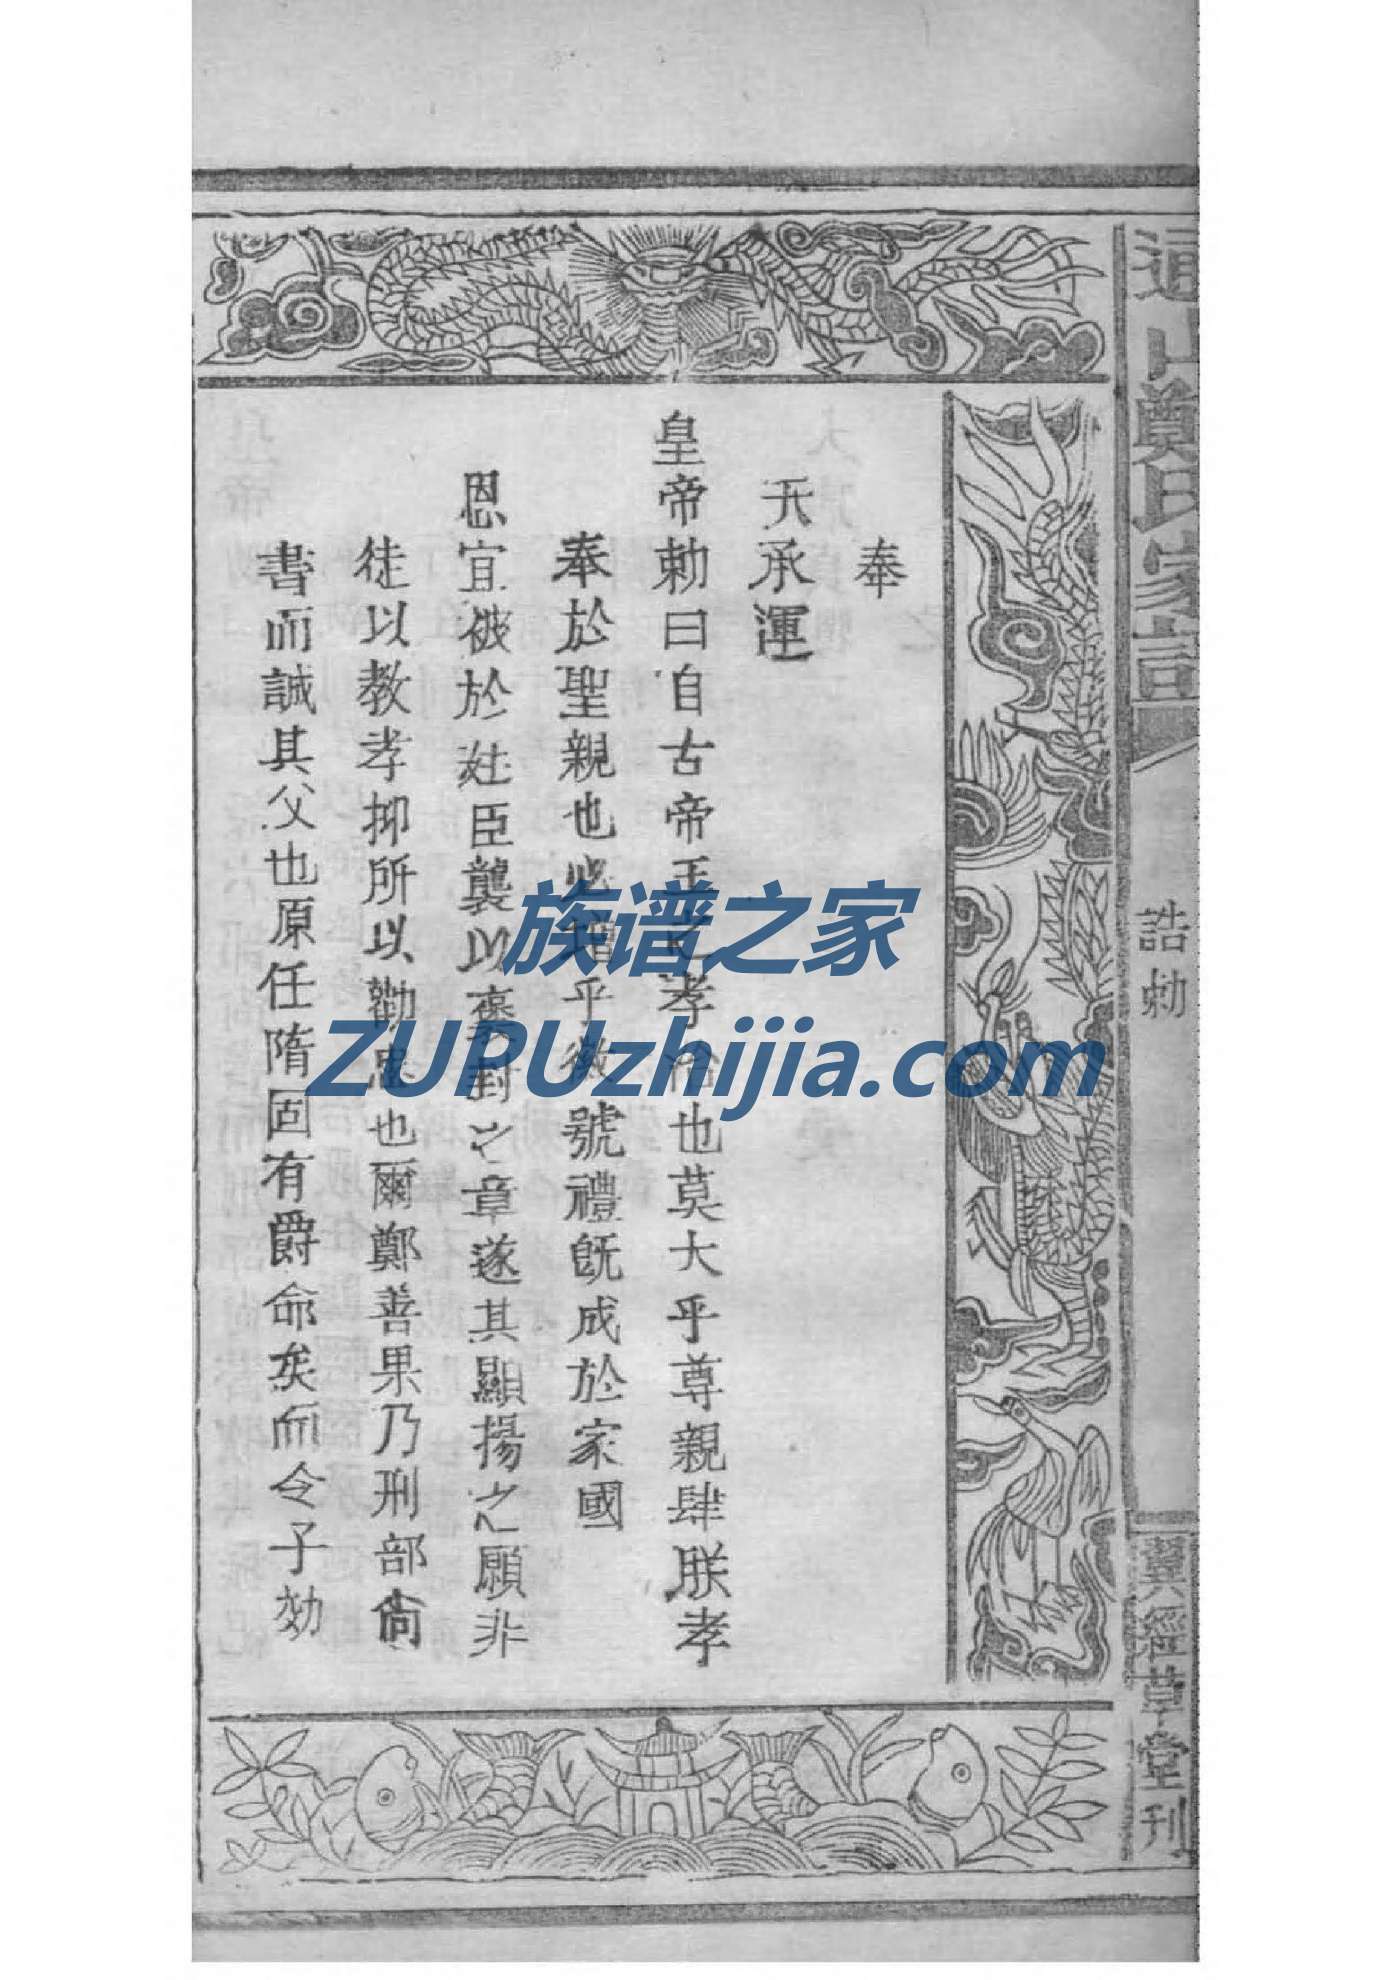 通山鄭氏家譜
誥勅
翼經草堂刊
奉
天承運
皇帝勅曰自古帝王之孝治也莫大乎尊親肆朕孝
奉於聖親也必乎徽號禮既成於家國
恩宜被於姓臣襲以褒封之章遂其顯揚之願非
徒以教孝抑所以勸忠也爾鄭善果乃刑部尚
書而誠其父也原任隋固有爵命矣而令子効
族谱之家
ZUPUzhijia.com